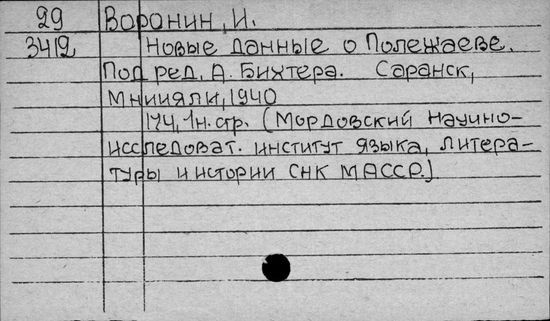 29 Воронин, И.
3412 Новые данные о Полежаеве.
Под ред. А. Бихтера. Саранск,
Мниияли, 1940
174, 1н. стр. (Мордовский научно-
исследоват. институт языка, литера-
туры и истории СНК МАССР.)